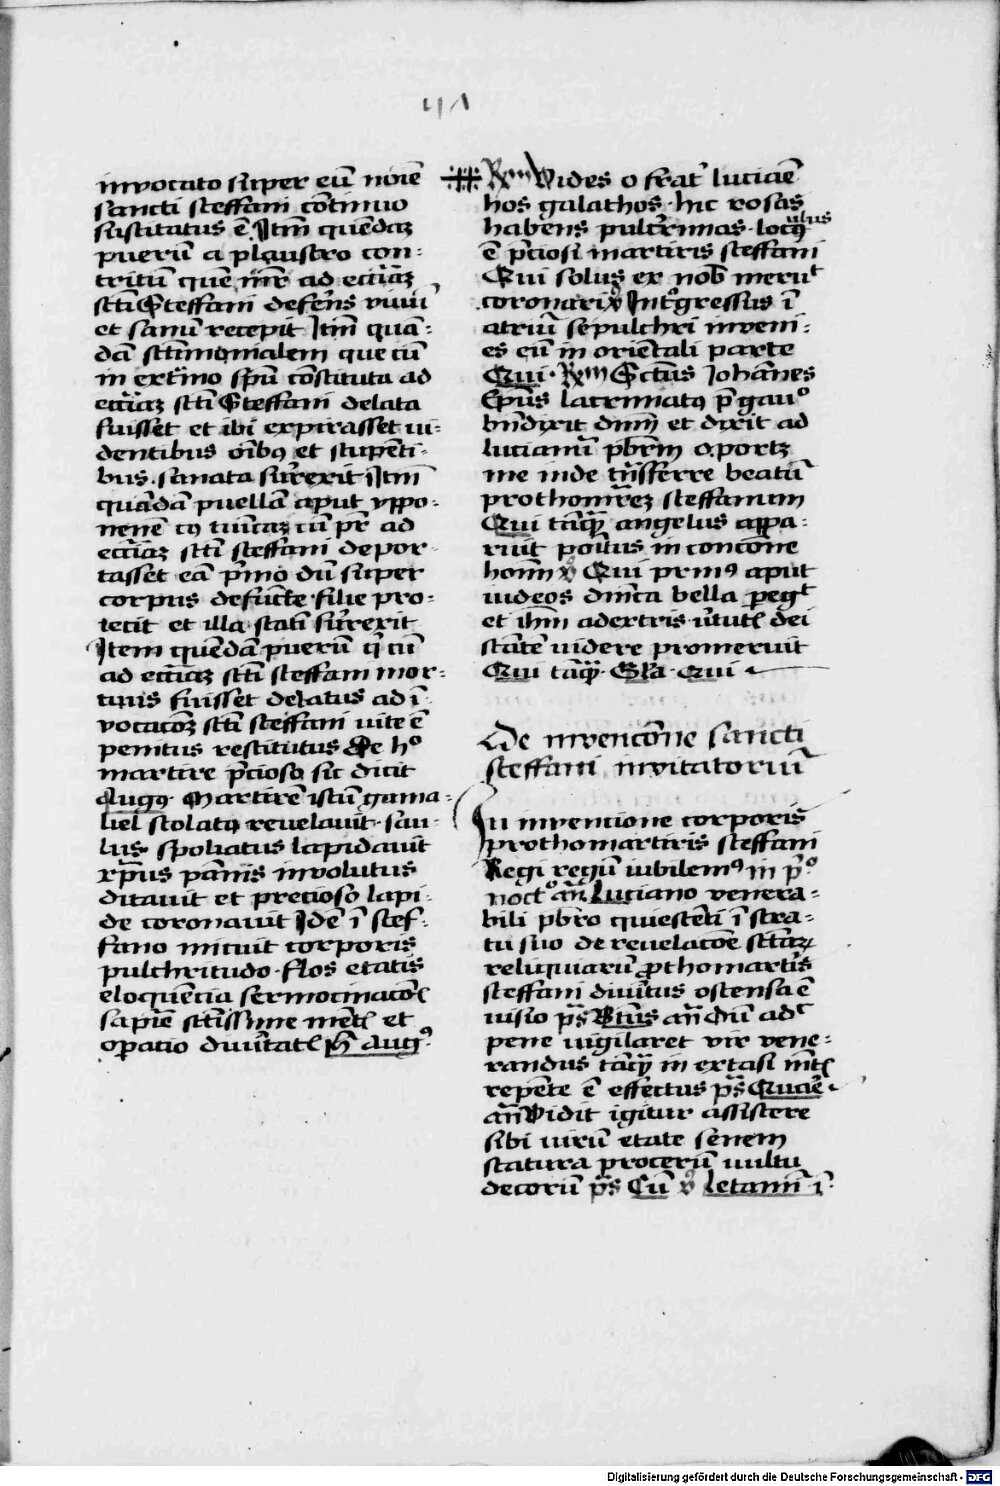 41
invocato super eu̅ no̅i̅e
sancti steffani co̅tinuo
sustitatus e̅ Ite̅ que̅daʒ
pueru̅ a plaustro con-
tritu̅ que̅ mr̅ ad ecc̅iaʒ
sc̅ti Steffani defere̅s vivu̅
et sanu̅ recepit Ite̅ qua̅-
da̅ sc̅timonialem que cu̅
in extr̅imo sp̅u co̅stituta ad
ecc̅iaʒ sc̅ti Steffani delata
fuisset et ibi expirasset vi-
dentibus o̅ibꝰ et stupenti-
bus sanata surrexit Ite̅
qua̅da̅ puellam aput yppo-
nene̅ cꝰ tunicaʒ cu̅ pr̅ ad
ecc̅iaʒ sc̅ti steffani depor-
tasset ea̅ p̅mo du̅ super
corpus defu̅cte filie pro-
iecit et illa stati̅ surrexit
Item que̅da̅ pueru̅ q̅ cu̅
ad ecc̅iaʒ sc̅ti steffani mor-
tuus fuisset delatus ad i̅-
vocac̅oʒ sc̅ti steffani vite e̅
penitus restitutus De hᵒ
martire p̅cioso sic dicit
Augꝰ Martire̅ istu̅ gama-
liel stolatꝰ revelavit sau-
lus spoliatus lapidavit
xp̅us pa̅nis involutus
ditavit et precioso lapi-
de coronavit Ide̅ i̅ stef-
fano micuit corporis
pulchritudo flos etatis
eloque̅cia sermocinac̅oꝭ
sapie̅ sc̅tissime me̅tꝭ et
op̅atio divi̅tatꝭ h̅ Augꝰ
Rm̅ Vides o frat̓ luciae̅
hos galathos hic rosas
habens pulcr̅imas locꝰ
e̅ p̅ciosi martiris steffani
Qui solus ex nob̅ meruᵗ
coronari v̓ Intᵒgressus i̅
atriu̅ sepulchri inveni-
es eu̅ in orie̅tali parte
Qui Rm̅ Sc̅tus Joha̅nes
Ep̅us lacrimatꝰ p̅ gauᵒ
bn̅dixit dn̅m et dixit ad
lucianu̅ pb̅rm oportʒ
me inde tr̅nsferre beatu̅
prothomr̅eʒ steffanum
Qui ta̅qꝫ angelus appa-
ruit positus in conc̅one
homi̅ v̓ Qui primꝰ aput
iudeos dn̅ica bella pegᵗ
et ih̅m adextris v̓tutꝭ dei
sta̅te̅ videre promeruit
Qui ta̅qꝫ Gl̅a Qui
De invenc̅one sancti
steffani invitatoriu̅
In inventione corporis
prothomartiris steffani
Regi regu̅ iubilemꝰ in p̅ᵒ
noctᵒ an̅ Luciano venera-
bili pb̅ro quiesce̅ti i̅ stra-
tu suo de revelac̅oe sc̅taʒ
reliquiaru̅ prothomartis
steffani divi̅tus ostensa e̅
visio ps̅ Bt̅us an̅ Du̅ adᶜ
pene vigilaret vir vene-
randus ta̅qꝫ in extasi me̅tꝭ
repe̅te e̅ effectus ps̅ Quare
an̅ Vidit igitur assistere
sibi viru̅ etate senem
statura proceru̅ vultu
decoru̅ ps̅ Cu̅ v̓ letamini i̅
Digitalisierung gefördert durch die Deutsche Forschungsgemeinschaft - DFG